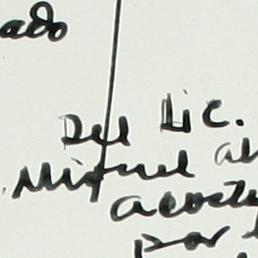 ado
Del Lic.
Miguel al
acosta
por